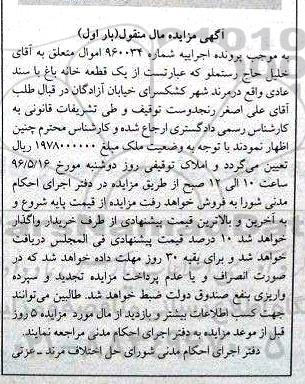 آگهی مزایده مال منقول(بار اول)
به موجب پرونده اجراییه شماره ۹۶۰۰۳۴ اموال متعلق به آقای
خلیل حاج رستملو که عبارتست از یک قطعه خانه باغ با سند
عادی واقع درمرند شهر کشکسرای خیابان آزادگان در قبال طلب
آقای علی اصغر رنجدوست توقیف و طی تشریفات قانونی به
کارشناس رسمی دادگستری ارجاع شده و کارشناس محترم چنین
اظهار نمودند با توجه به وضعیت ملک مبلغ ۱۹۷۸۰۰۰۰۰۰ ریال
تعیین می‌گردد و املاک توقیفی روز دوشنبه مورخ ۹۶/۵/۱۶
ساعت ۱۰ الی ۱۲ صبح از طریق مزایده در دفتر اجرای احکام
مدنی شورا به فروش خواهد رفت مزایده از قیمت پایه شروع و
به آخرین و بالاترین قیمت پیشنهادی از طرف خریدار واگذار
خواهد شد ۱۰ درصد قیمت پیشنهادی فی المجلس دریافت
خواهد شد و برای بقیه ۳۰ روز مهلت داده خواهد شد که در
صورت انصراف و یا عدم پرداخت مزایده تجدید و سپرده
واریزی بنفع صندوق دولت ضبط خواهد شد. طالبین می‌توانند
جهت کسب اطلاعات بیشتر و بازدید از مال مورد مزایده ۵ روز
قبل از موعد مزایده به دفتر اجرای احکام مدنی مراجعه نمایند.
دفتر اجرای احکام مدنی شورای حل اختلاف مرند ـ عزتی